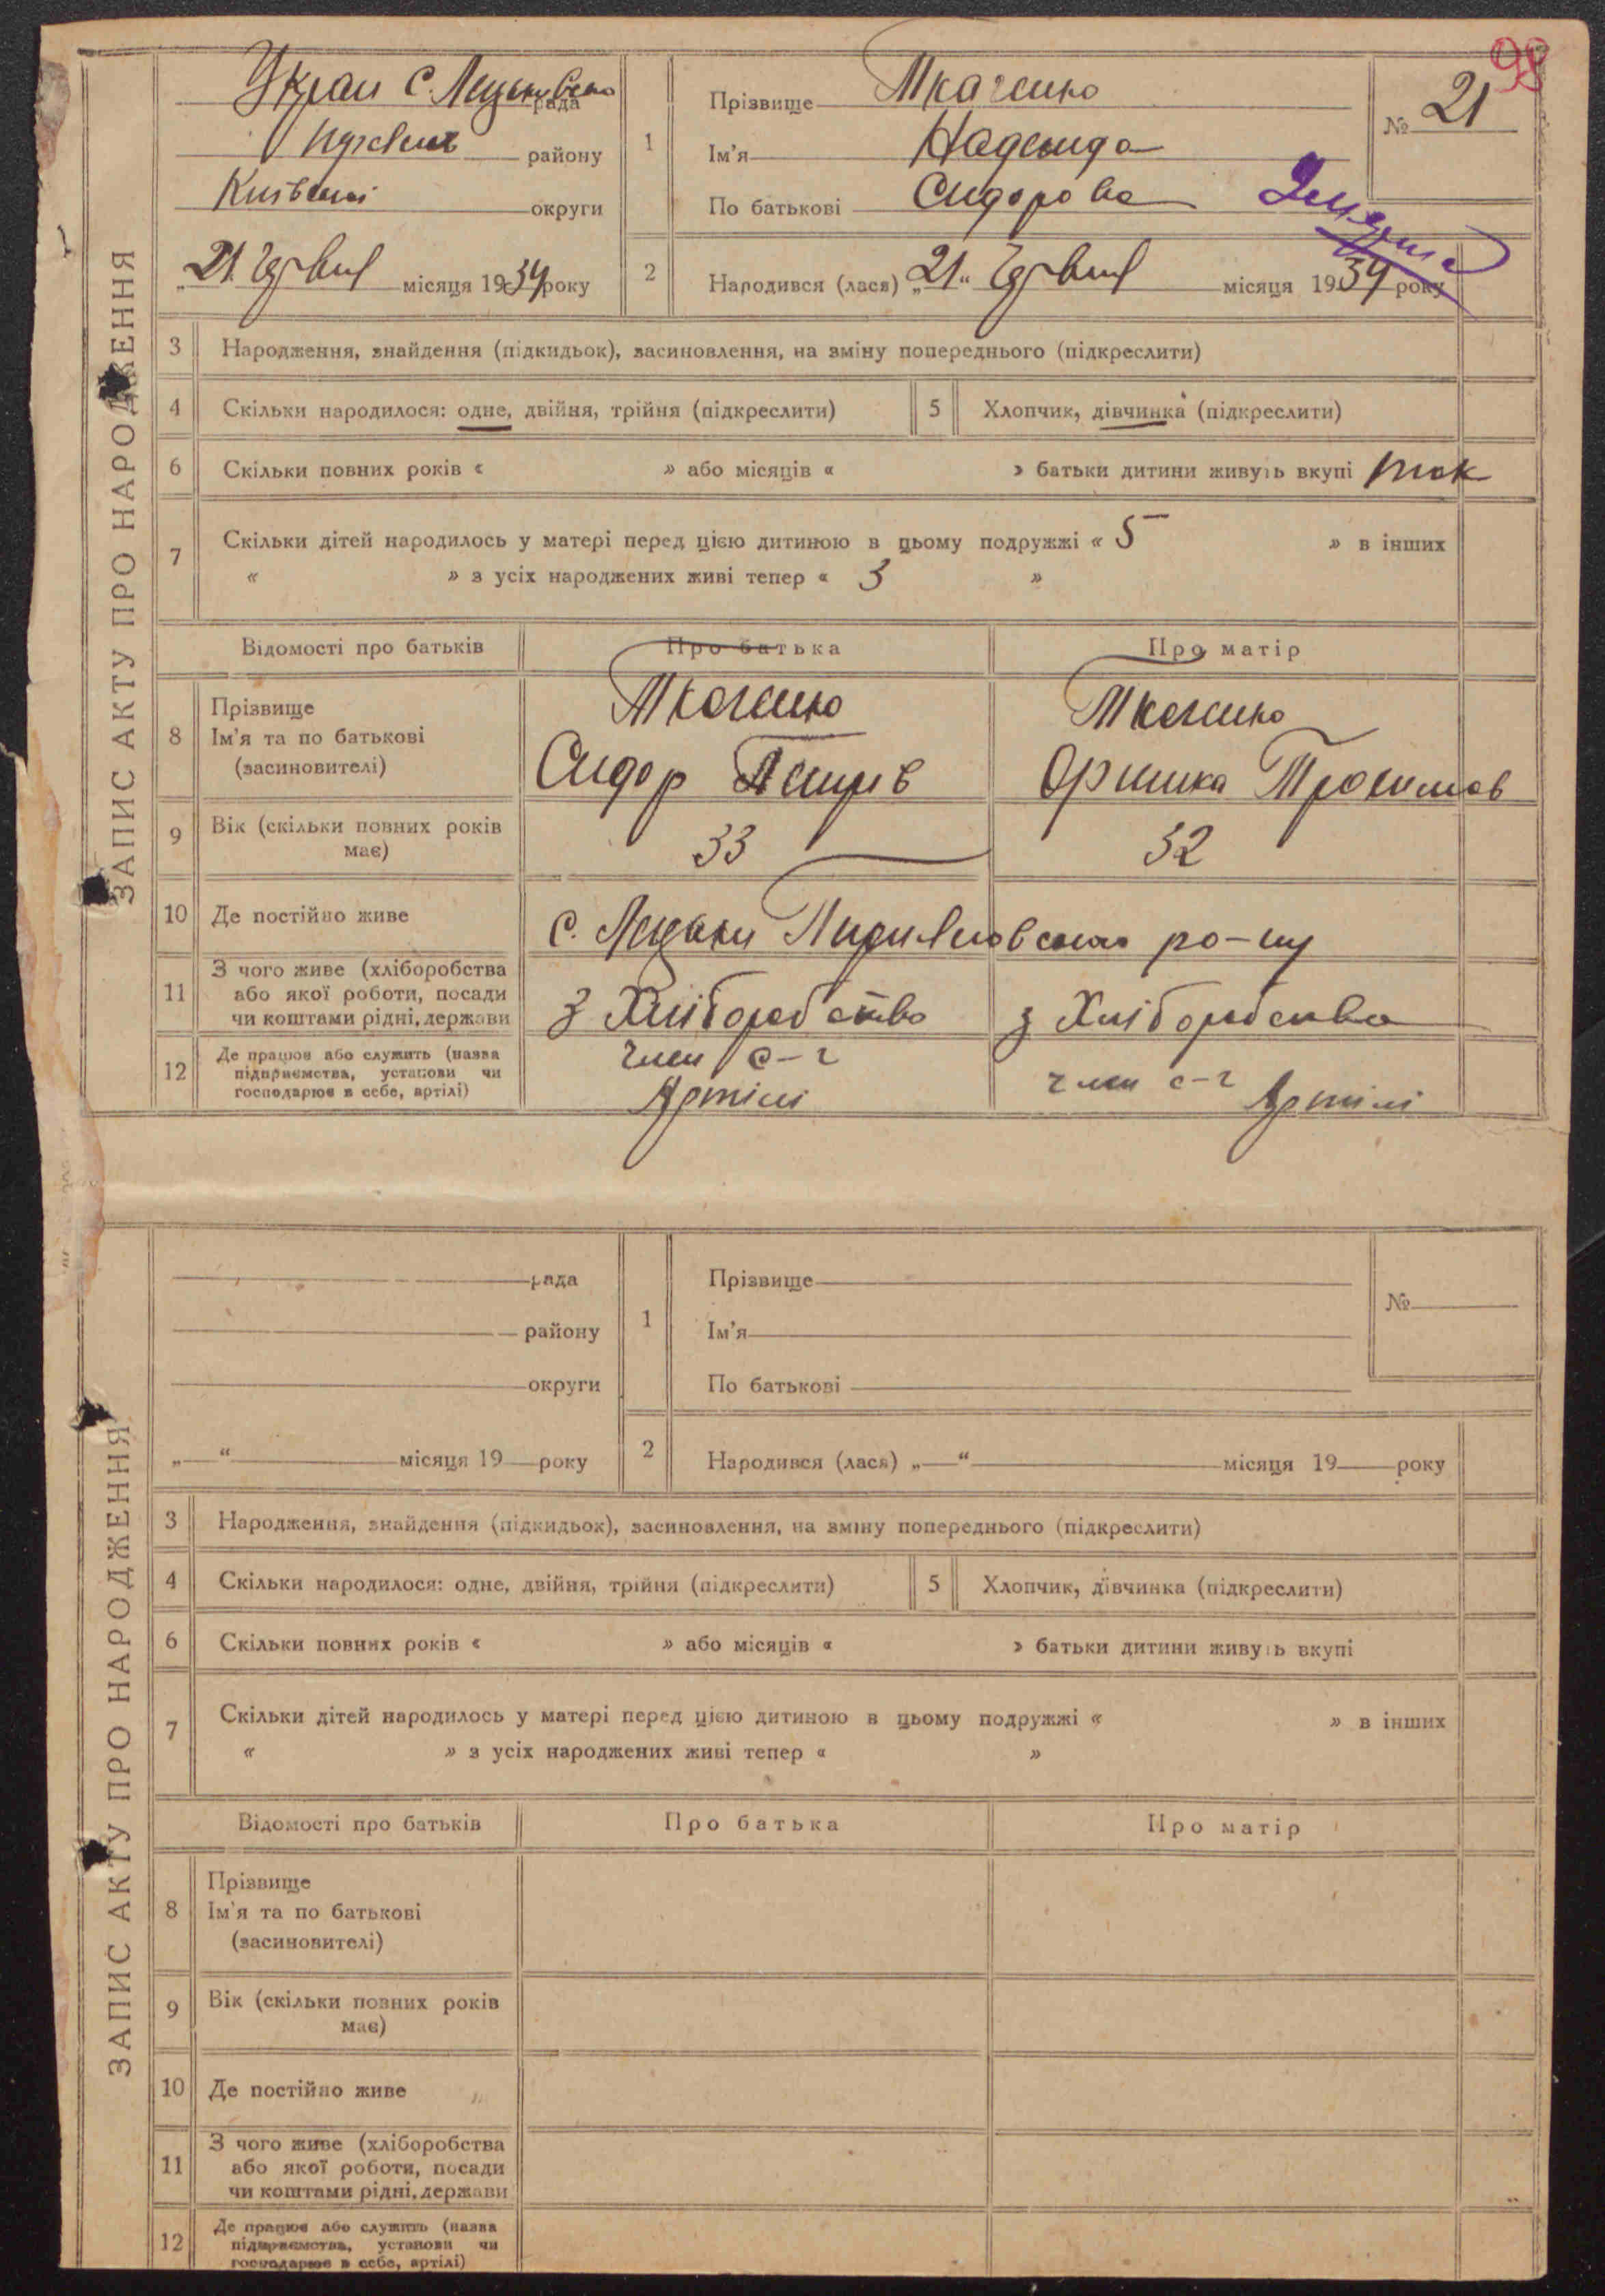 98
ЗАПИС АКТУ ПРО НАРОДЖЕННЯ
рада
району
Київської округи
„21 червня місяця 1934 року
1
Прізвище Ткаченко
Ім'я Надежда
По батькові Сидорова
№ 21
2
Народився (лася) „21“ червня місяця 1934 року
3 Народження, знайдення (підкидьок), засиновлення, на зміну попереднього (підкреслити)
4 Скільки народилося: одне, двійня, трійня (підкреслити)
5 Хлопчик, дівчинка (підкреслити)
6 Скільки повних років « » або місяців « » батьки дитини живуть вкупі так
7 Скільки дітей народилось у матері перед цією дитиною в цьому подружжі « 5 » в інших
« » з усіх народжених живі тепер « 3 »
Відомості про батьків
Про батька
Про матір
8 Прізвище
Ім'я та по батькові
(засиновителі)
Ткаченко
Сидор Петрів
Ткаченко
Оришка Трохимов
9 Вік (скільки повних років
має)
33
32
10 Де постійно живе
с. ро-ну
11 З чого живе (хліборобства
або якої роботи, посади
чи коштами рідні, держави
з Хліборобство
з Хліборобства
12 Де працює або служить (назва
підприємства, установи чи
господарює в себе, артілі)
член с-г
Артілі
член с-г
Артілі
ЗАПИС АКТУ ПРО НАРОДЖЕННЯ
рада
району
округи
„ “ місяця 19 року
1
Прізвище
Ім'я
По батькові
№
2
Народився (лася) „ “ місяця 19 року
3 Народження, знайдення (підкидьок), засиновлення, на зміну попереднього (підкреслити)
4 Скільки народилося: одне, двійня, трійня (підкреслити)
5 Хлопчик, дівчинка (підкреслити)
6 Скільки повних років « » або місяців « » батьки дитини живуть вкупі
7 Скільки дітей народилось у матері перед цією дитиною в цьому подружжі « » в інших
« » з усіх народжених живі тепер « »
Відомості про батьків
Про батька
Про матір
8 Прізвище
Ім'я та по батькові
(засиновителі)
9 Вік (скільки повних років
має)
10 Де постійно живе
11 З чого живе (хліборобства
або якої роботи, посади
чи коштами рідні, держави
12 Де працює або служить (назва
підприємства, установи чи
господарює в себе, артілі)